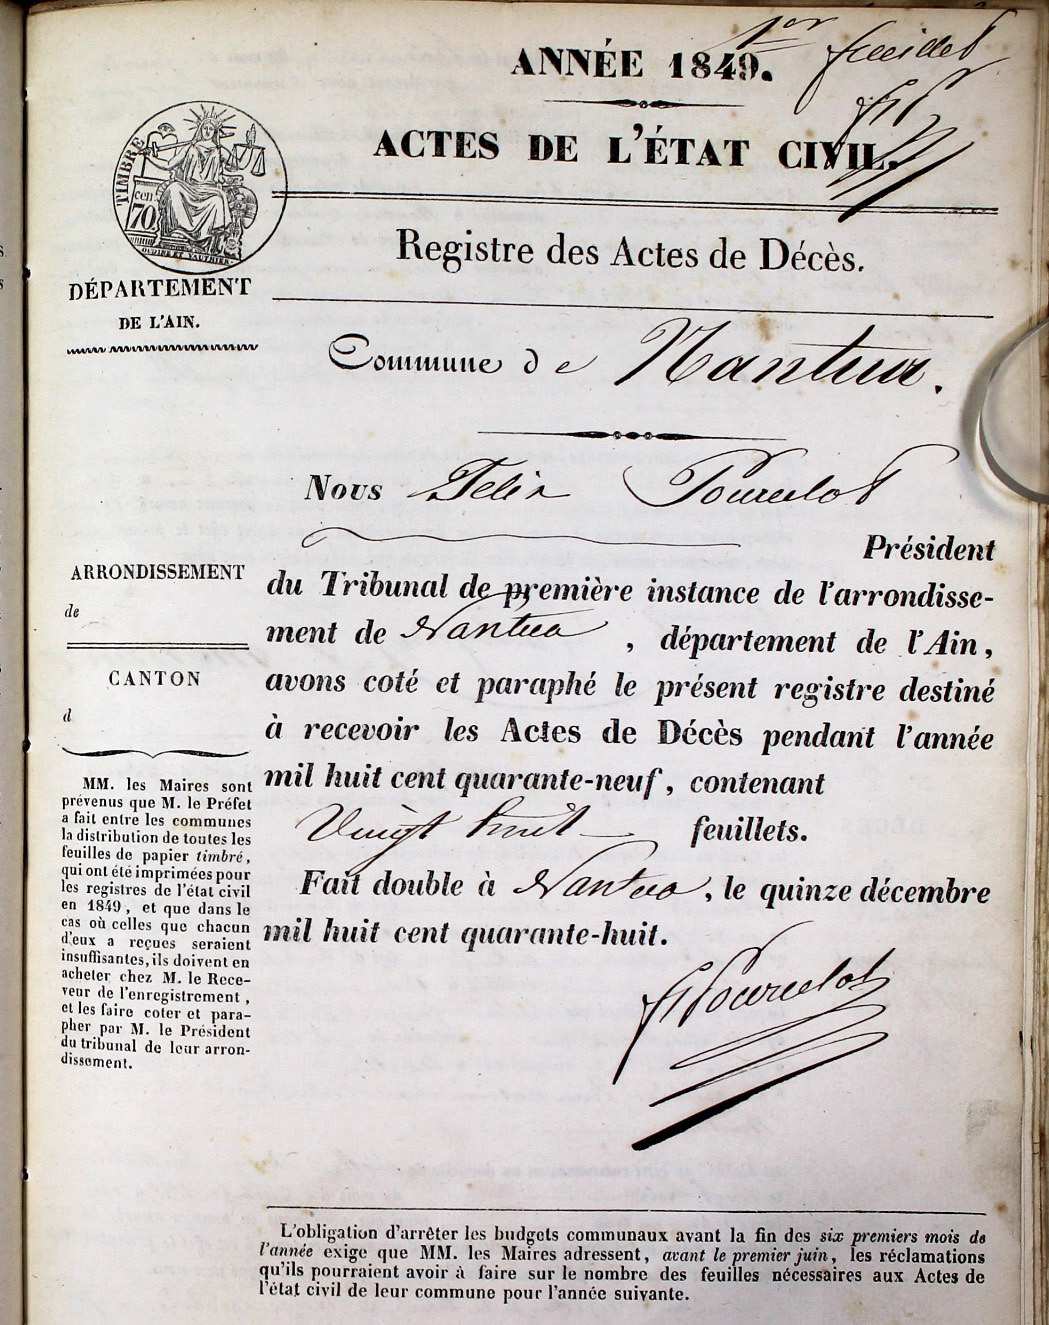 1er feuillet
ANNÉE 1849.
FP
ACTES DE L'ÉTAT CIVIL.
TIMBRE
70 cen
OUDINE ET VAUTHIER
Registre des Actes de Décès.
DÉPARTEMENT
DE L'AIN.
Commune de Nantua.
Nous Felix Pourcelot
Président
du Tribunal de première instance de l'arrondisse-
ment de Nantua, département de l'Ain,
avons coté et paraphé le présent registre destiné
à recevoir les Actes de Décès pendant l'année
mil huit cent quarante-neuf, contenant
Vingt huit feuillets.
Fait double à Nantua, le quinze décembre
mil huit cent quarante-huit.
FPourcelot
ARRONDISSEMENT
de
CANTON
d
MM. les Maires sont
prévenus que M. le Préfet
a fait entre les communes
la distribution de toutes les
feuilles de papier timbré,
qui ont été imprimées pour
les registres de l'état civil
en 1849, et que dans le
cas où celles que chacun
d'eux a reçues seraient
insuffisantes, ils doivent en
acheter chez M. le Rece-
veur de l'enregistrement,
et les faire coter et para-
pher par M. le Président
du tribunal de leur arron-
dissement.
L'obligation d'arrêter les budgets communaux avant la fin des six premiers mois de
l'année exige que MM. les Maires adressent, avant le premier juin, les réclamations
qu'ils pourraient avoir à faire sur le nombre des feuilles nécessaires aux Actes de
l'état civil de leur commune pour l'année suivante.